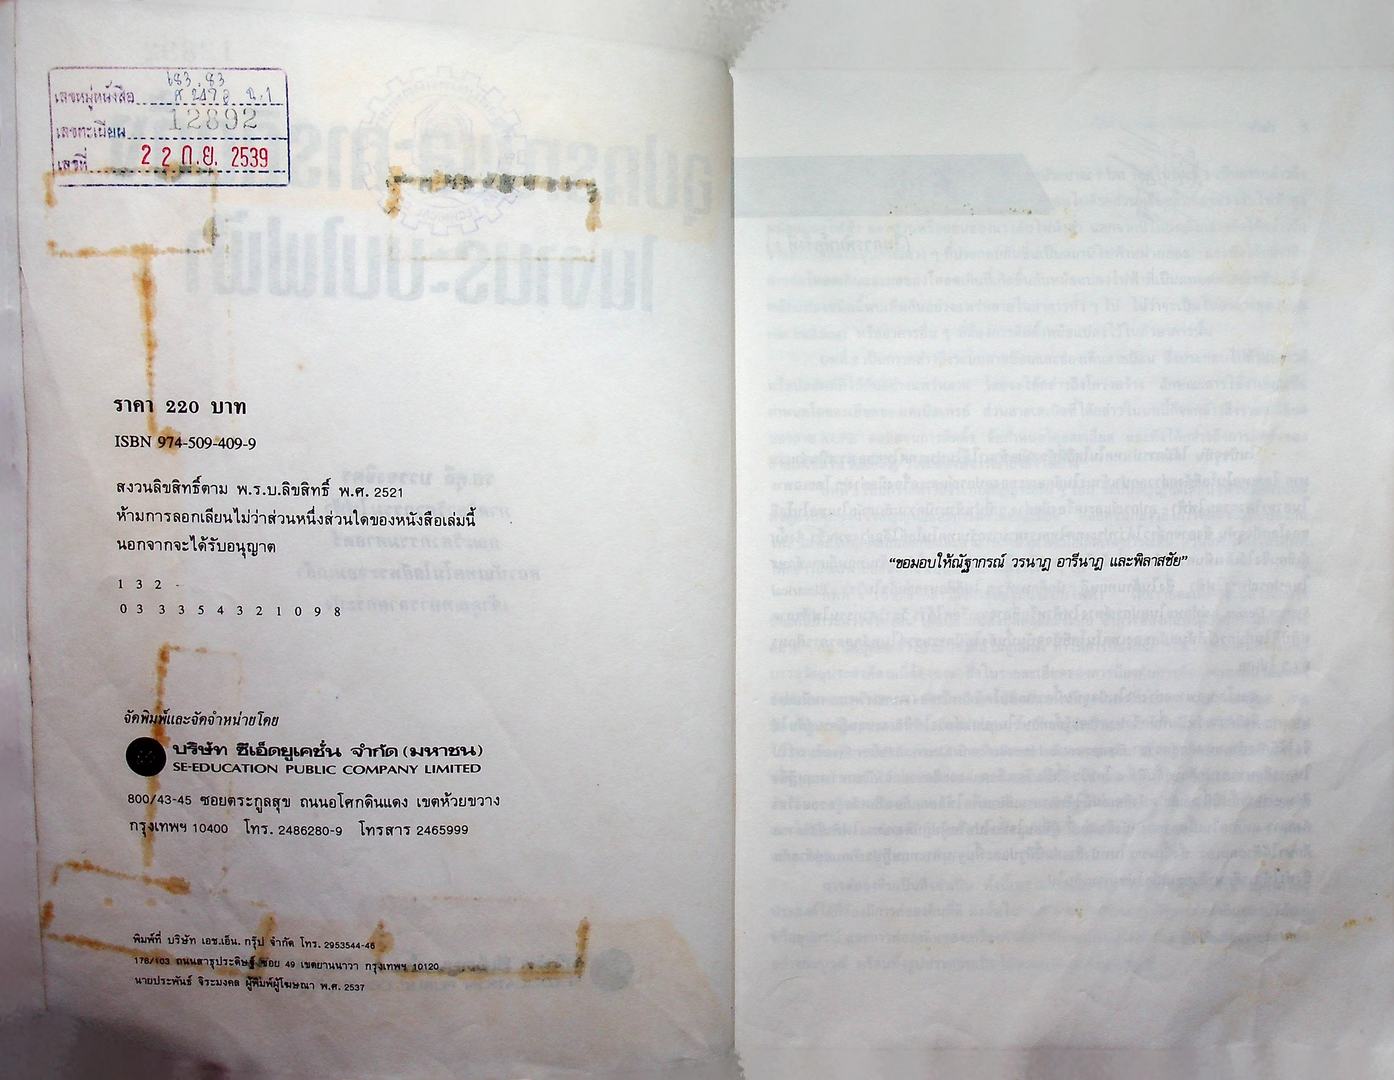 เลขหมู่หนังสือ
เลขทะเบียน 12892
เลขที่ 2 2 ก.ย. 2539
ราคา 220 บาท
ISBN 974-509-409-9
สงวนลิขสิทธิ์ตาม พ.ร.บ.ลิขสิทธิ์ พ.ศ. 2521
ห้ามการลอกเลียนไม่ว่าส่วนหนึ่งส่วนใดของหนังสือเล่มนี้
นอกจากจะได้รับอนุญาต
1 3 2 -
0 3 3 3 5 4 3 2 1 0 9 8
จัดพิมพ์และจัดจำหน่ายโดย
บริษัท ซีเอ็ดยูเคชั่น จำกัด (มหาชน)
SE-EDUCATION PUBLIC COMPANY LIMITED
800/43-45 ซอยตระกูลสุข ถนนอโศกดินแดง เขตห้วยขวาง
กรุงเทพฯ 10400 โทร. 2486280-9 โทรสาร 2465999
พิมพ์ที่ บริษัท เอช.เอ็น. กรุ๊ป จำกัด โทร. 2953544-46
178/103 ถนนสาธุประดิษฐ์ ซอย 49 เขตยานนาวา กรุงเทพฯ 10120
นายประพันธ์ จิระมงคล ผู้พิมพ์ผู้โฆษณา พ.ศ. 2537
“ขอมอบให้ณัฐากรณ์ วรนาฎ อารีนาฎ และพิลาสชัย”